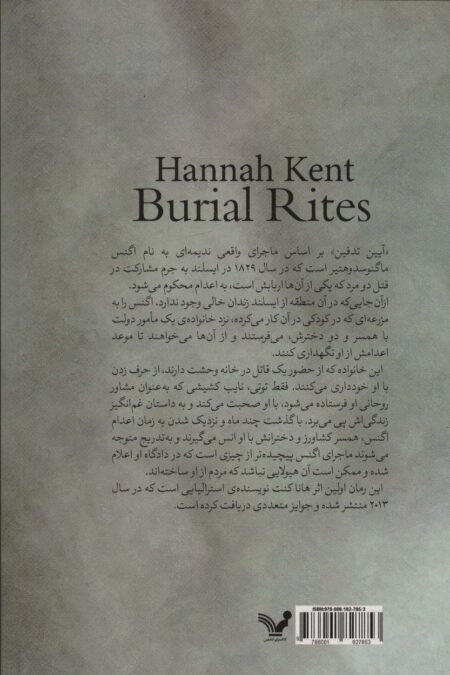 Hannah Kent
Burial Rites
«آیین تدفین» بر اساس ماجرای واقعی ندیمه‌ای به نام اگنس
ماگنوسدوهتیر است که در سال ۱۸۲۹ در ایسلند به جرم مشارکت در
قتل دو مرد که یکی از آن‌ها اربابش است، به اعدام محکوم می‌شود.
ازآن‌جایی‌که در آن منطقه از ایسلند زندان خالی وجود ندارد، اگنس را به
مزرعه‌ای که در کودکی در آن کار می‌کرده، نزد خانواده‌ی یک مأمور دولت
با همسر و دو دخترش، می‌فرستند و از آن‌ها می‌خواهند تا موعد
اعدامش از او نگهداری کنند.
این خانواده که از حضور یک قاتل در خانه وحشت دارند، از حرف زدن
با او خودداری می‌کنند. فقط توتی، نایب کشیشی که به‌عنوان مشاور
روحانی او فرستاده می‌شود، با او صحبت می‌کند و به داستان غم‌انگیز
زندگی‌اش پی می‌برد. با گذشت چند ماه و نزدیک شدن به زمان اعدام
اگنس، همسر کشاورز و دخترانش با او انس می‌گیرند و به‌تدریج متوجه
می‌شوند ماجرای اگنس پیچیده‌تر از چیزی است که در دادگاه او اعلام
شده و ممکن است آن هیولایی نباشد که مردم از او ساخته‌اند.
این رمان اولین اثر هانا کنت نویسنده‌ی استرالیایی است که در سال
۲۰۱۳ منتشر شده و جوایز متعددی دریافت کرده است.
ISBN:978-600-182-785-3
9 786001 827853